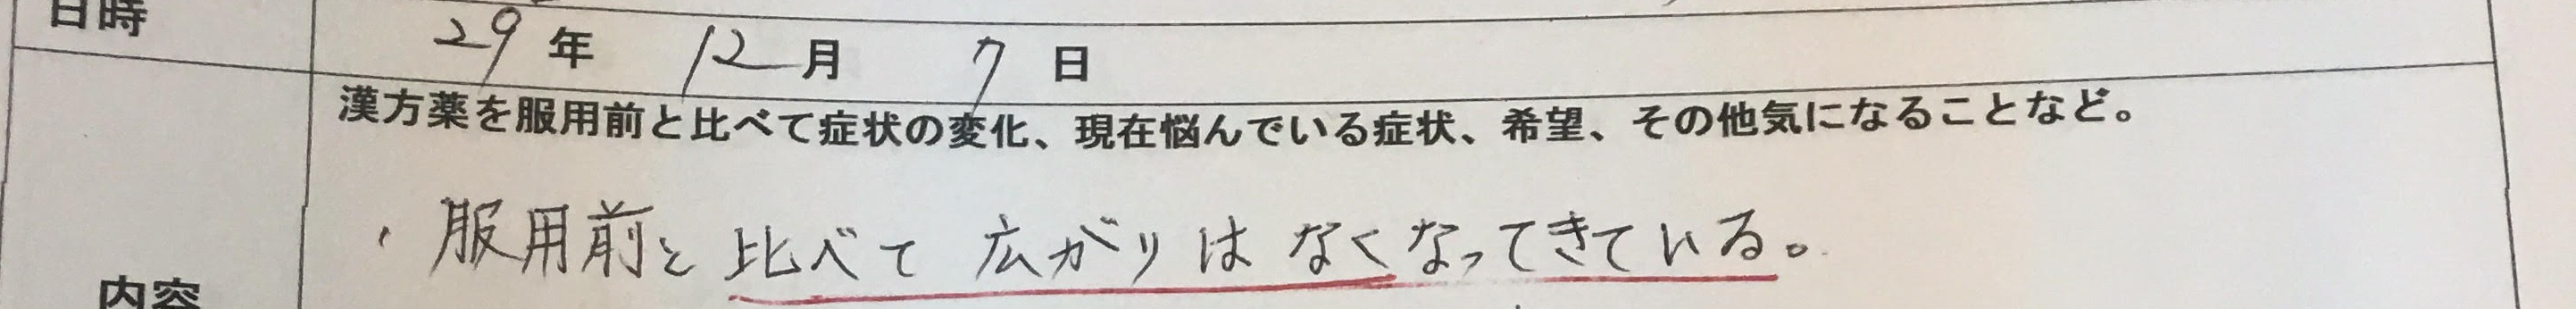 日時 29年 12月 7日
漢方薬を服用前と比べて症状の変化、現在悩んでいる症状、希望、その他気になることなど。
・服用前と比べて広がりはなくなってきている。
内容